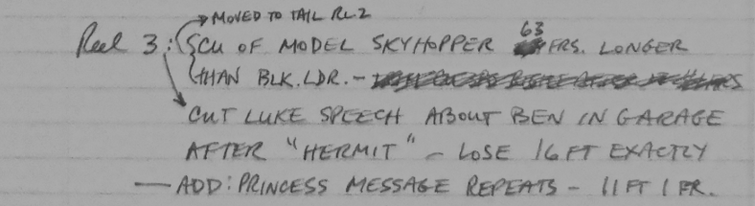 MOVED TO TAIL RL.2
Reel 3: SCU OF MODEL SKYHOPPER 63 FRS. LONGER
THAN BLK. LDR. -
CUT LUKE SPEECH ABOUT BEN IN GARAGE
AFTER "HERMIT" - LOSE 16 FT EXACTLY
- ADD: PRINCESS MESSAGE REPEATS - 11 FT 1 FR.